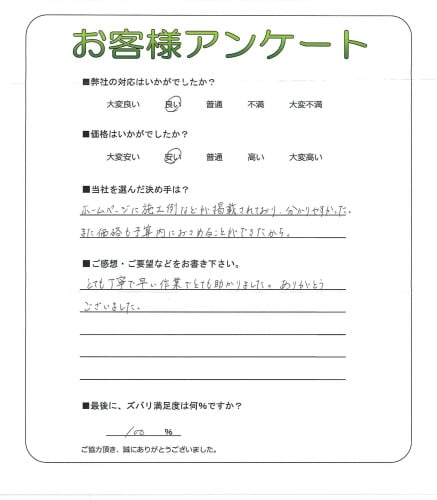 お客様アンケート
■弊社の対応はいかがでしたか?
大変良い 良い 普通 不満 大変不満
■価格はいかがでしたか?
大変安い 安い 普通 高い 大変高い
■当社を選んだ決め手は?
ホームページに施工例などが掲載されており、分かりやすかった。
また価格も予算内におさめることができたから。
■ご感想・ご要望などをお書き下さい。
とても丁寧で早い作業でとても助かりました。ありがとう
ございました。
■最後に、ズバリ満足度は何%ですか?
100 %
ご協力頂き、誠にありがとうございました。